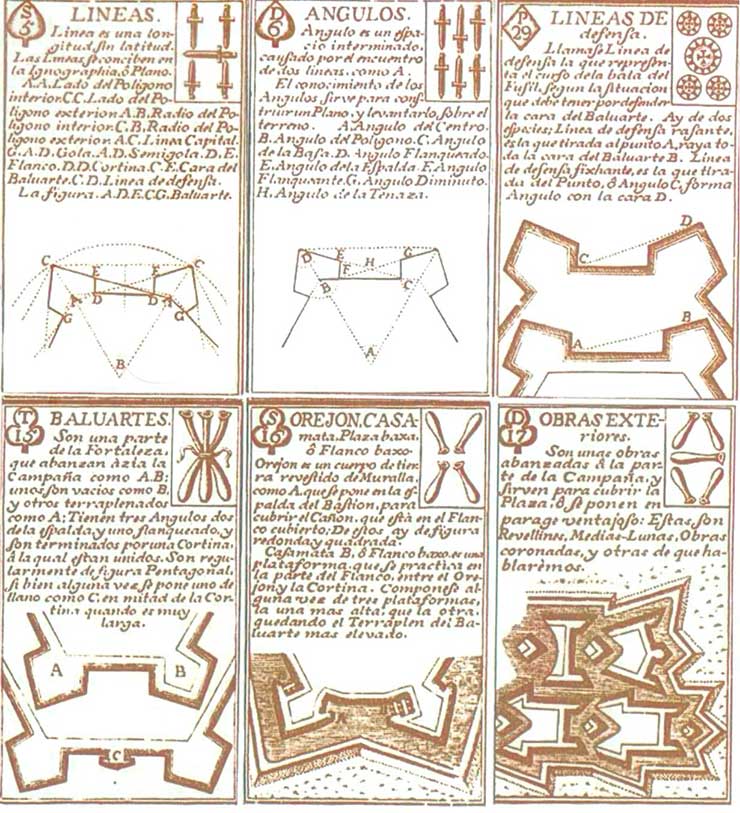 S
5
LINEAS.
Linea es una lon-
gitud sin latitud.
Las Lineas se conciben en
la Ignographia, ô Plano.
A.A. Lado del Poligono
interior. C.C. Lado del Po-
ligono exterior. A.B. Radio del Po-
ligono interior. C.B. Radio del Po-
ligono exterior. A.C. Linea Capital.
G.A.D. Gola. A.D. Semigola. D.E.
Flanco. D.D. Cortina. C.E. Cara del
Baluarte. C.D. Linea de defensa.
La figura. A.D.E.C.G. Baluarte.
C
E
E
C
A
D
D
A
G
G
B
D
6
ANGULOS.
Angulo es un espa-
cio interminado,
causado por el encuentro
de dos lineas, como A.
El conocimiento de los
Angulos, sirve para cons-
truir un Plano, y levantarlo, sobre el
terreno. A. Angulo del Centro.
B. Angulo del Poligono. C. Angulo
de la Basa. D. Angulo Flanqueado.
E. Angulo de la Espalda. F. Angulo
Flanqueante. G. Angulo Diminuto.
H. Angulo de la Tenaza.
D
E
G
F
H
B
C
A
P
29
LINEAS DE
defensa.
Llamase Linea de
defensa la que represen-
ta el curso de la bala del
Fusil, segun la situacion
que debe tener por defender
la cara del Baluarte. Ay de dos
especies; Linea de defensa rasante,
es la que tirada al punto A, raya to-
da la cara del Baluarte B. Linea
de defensa fixchante, es la que tira-
da del Punto, ô Angulo C, forma
Angulo con la cara D.
D
C
B
A
T
15
BALUARTES.
Son una parte
de la Fortaleza,
que abanzan àzia la
Campaña como A.B:
unos son vacios como B,
y otros terraplenados
como A; Tienen tres Angulos dos
de la espalda y uno flanqueado, y
son terminados por una Cortina,
â la qual estan unidos. Son regu-
larmente de figura Pentagonal,
si bien alguna vez se pone uno de
llano como C. en mitad de la Cor-
tina quando es muy
larga.
A
B
C
S
16
OREJON, CASA-
mata, Plaza baxa,
ô Flanco baxo
Orejon es un cuerpo de tier-
ra revestido de Muralla,
como A, que se pone en la es-
palda del Bastion, para
cubrir el Cañon, que está en el Flan-
co cubierto; De estos ay de figura
redonda y quadrada.
Casamata B, ô Flanco baxo, es una
plataforma, que se practica en
la parte del Flanco, entre el Ore-
jon y la Cortina. Componese al-
guna vez de tres plataformas,
la una mas alta, que la otra,
quedando el Terraplen del Ba-
luarte mas elevado.
D
17
OBRAS EXTE-
riores.
Son unas obras
abanzadas â la par-
te de la Campaña, y
sirven para cubrir la
Plaza, ô se ponen en
parage ventajoso: Estas, son
Revellines, Medias-Lunas, Obras
coronadas, y otras de que ha-
blarêmos.